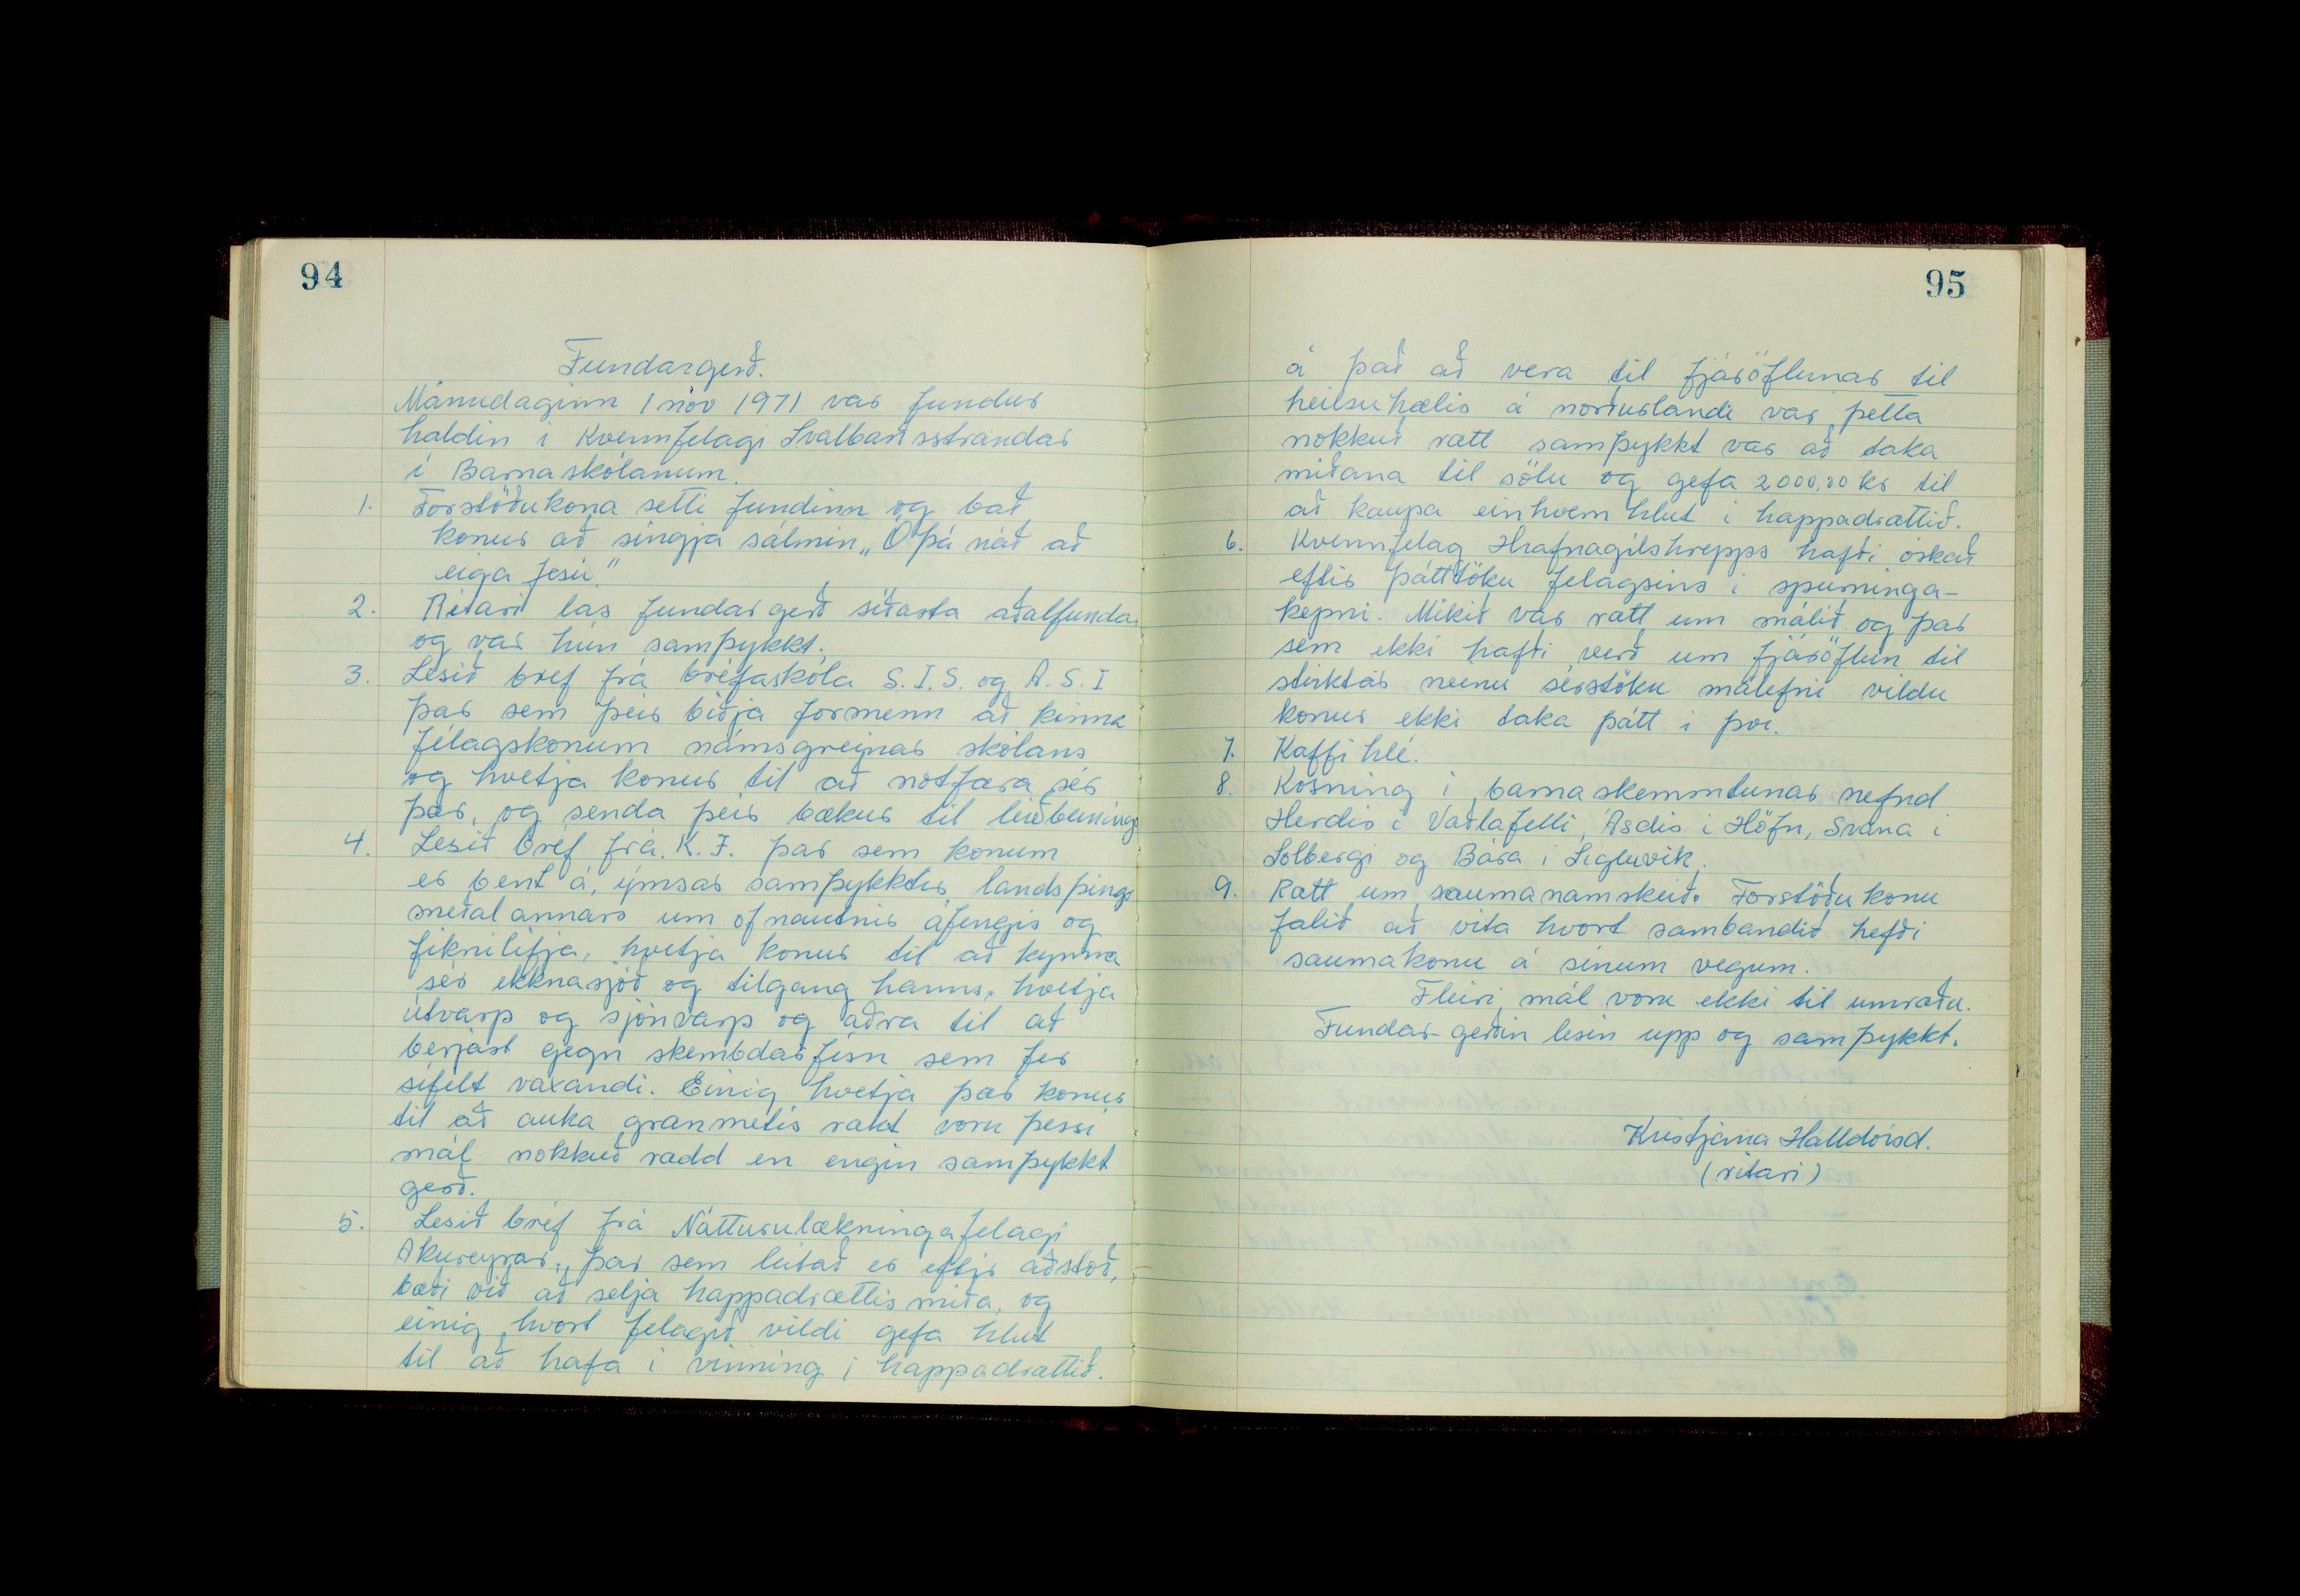 94
Fundargerð.
Mánudaginn 1 nóv 1971 var fundur
haldin i Kvennfelagi Svalbarðsstrandar
í Barnaskólanum.
1. Forstöðukona setti fundinn og bað
konur að singja sálmin „Ó þá náð að
eiga Jesú."
2. Ritari las fundargerð síðasta aðalfundar
og var hún samþykkt.
3. Lesið bref frá bréfaskóla S.Í.S. og A.S.Í
þar sem þeir biðja formenn að kinna
félagskonum námsgreinar skólans
og hvetja konur til að notfæra sér
þær, og senda þeir bækur til leiðbeininga
4. Lesið bréf frá K.Í. þar sem konum
er bent á, ýmsar samþykktir landsþings
meðal annars um ofnautnir áfengis og
fiknilifja, hvetja konur til að kynna
sér ekknasjóð og tilgang hanns, hvetja
útvarp og sjónvarp og aðra til að
berjast gegn skembdarfísn sem fer
sífelt vaxandi. Einig hvetja þær konur
til að auka grænmetis rækt voru þessi
mál nokkuð rædd en engin samþykkt
gerð.
5. Lesið bréf frá Náttúrulækningafelagi
Akureyrar, þar sem leitað er eftir aðstoð,
bæði við að selja happadrættis miða, og
einig hvort felagið vildi gefa hlut
til að hafa í vinning i happadrættið.
95
á það að vera til fjáröflunar til
heilsuhælis á norðurlandi var þetta
nokkuð rætt samþykkt var að taka
miðana til sölu og gefa 2000,00 kr til
að kaupa einhvern hlut i happadrættið.
6. Kvennfelag Hrafnagilshrepps hafði óskað
eftir þátttöku felagsins i spurninga-
kepni. Mikið var rætt um málið og þar
sem ekki hafði verð um fjáröflun til
stirktar neinu sérstöku málefni vildu
konur ekki taka þátt i því.
7. Kaffi hlé.
8. Kosning i barnaskemmtunar nefnd
Herdis i Vaðlafelli, Ásdis i Höfn, Svana i
Sólbergi og Bára i Sigluvik.
9. Rætt um saumanamskeið. Forstöðukonu
falið að vita hvort sambandið hefði
saumakonu á sínum vegum.
Fleiri mál voru ekki til umræðu.
Fundar-gerðin lesin upp og samþykkt.
Kristjana Halldórsd.
(ritari)